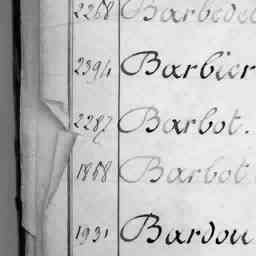 2268 Barbedet
2394 Barbier
2287 Barbot.
1858 Barbot
1931 Bardou